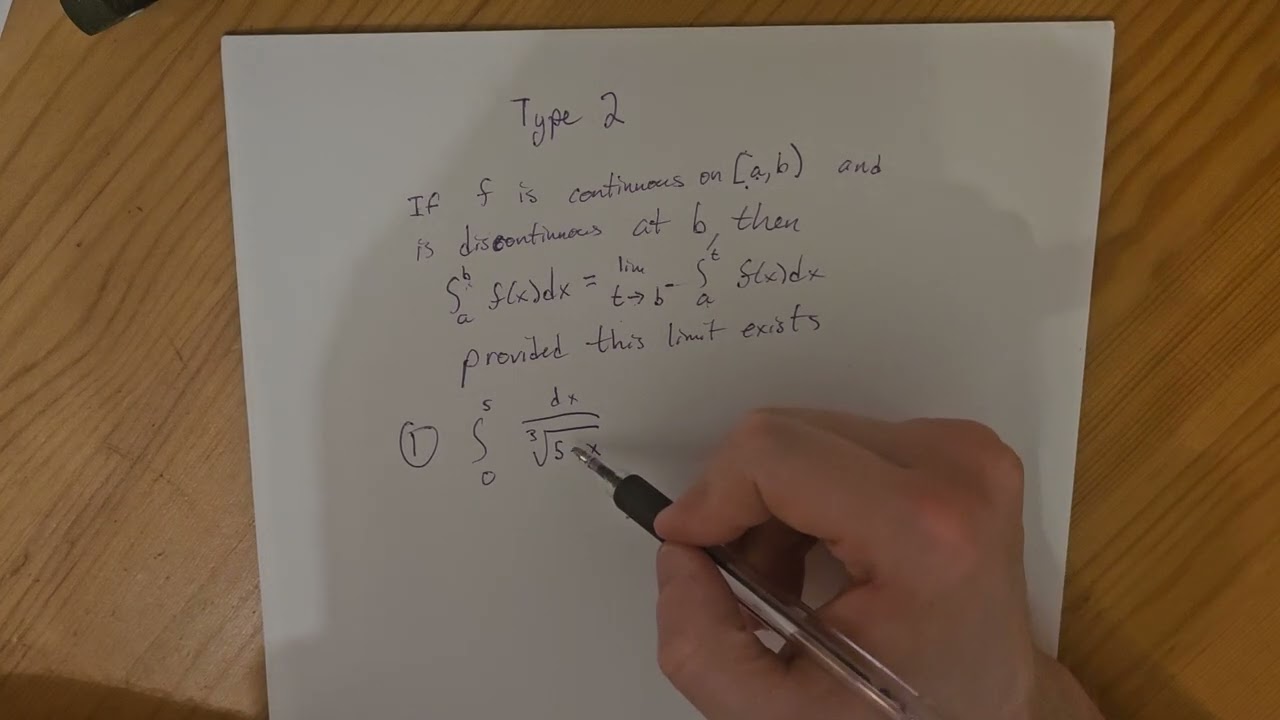 Type 2
If f is continuous on [a,b) and
is discontinuous at b, then
∫_a^b f(x)dx = lim_{t→b⁻} ∫_a^t f(x)dx
provided this limit exists
① ∫_0^5 dx/∛(5-x)